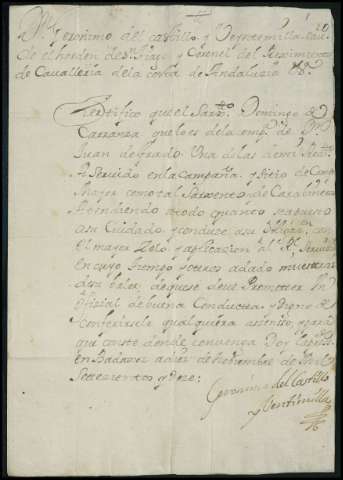 Dn Geronimo del castillo y Veyntemilla Cavro
de el horden de Sn tiago y Coronel del Reximiento
de Cavalleria de la costa de Andaluzia &a
Zertifico que el Sarxto Domingo
Carranza que lo es de la compa de Dn
Juan de Prado Una de las de mi Rexto
A Servido en la Campaña y sitio de Campo
Mayor como tal Sarxento de Caravineros
Atendiendo a todo quanto
a su Cuidado y conduce a su con
el mayor Zelo y aplicacion al Rl Servicio
En cuyo tiempo a dado muestras
de su balor de que se deve Prometer Un
oficial de buena Conducta y Digno de
Conferirsele qualquiera assenso y para
que conste donde convenga Doy la preste
en Badajoz a diez de Noviembre de Mil
Setezientos y Doze:
Geronimo del Castillo
y Ventimilla